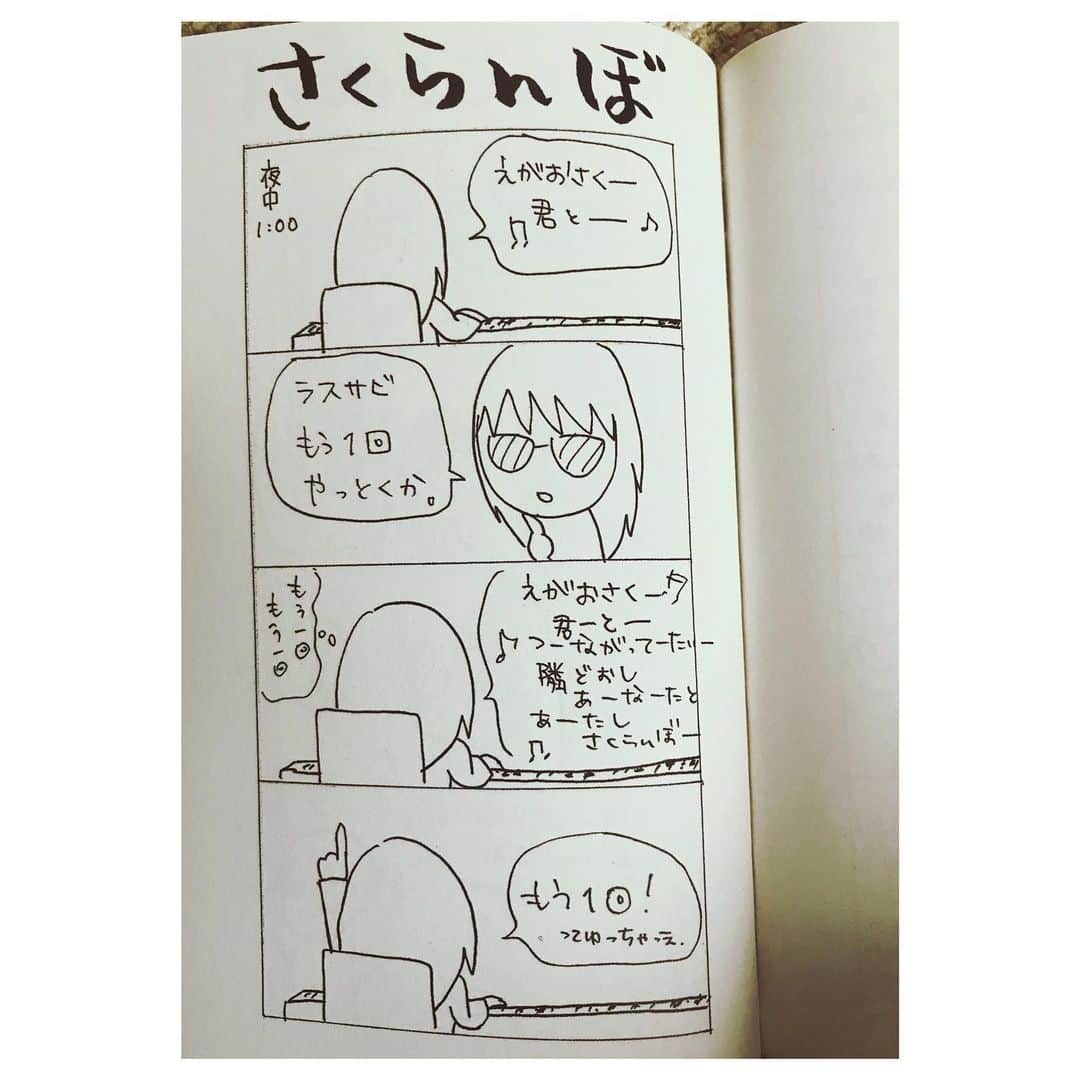 さくらんぼ
夜中
1:00
えがおさくー
君とー
ラスサビ
もう1回
やっとくか。
えがおさくー
君ーとー
つーながってーたいー
隣どおし
あーなーたと
あーたし
さくらんぼー
もう一回
もう一回
もう1回!
ってゆっちゃっえ.